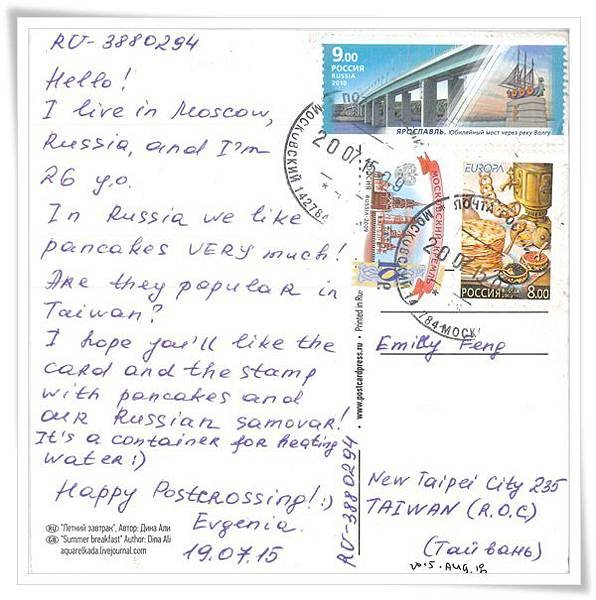 RU-3880294
Hello!
I live in Moscow,
Russia, and I'm
26 y.o.
In Russia we like
pancakes VERY much!
Are they popular in
Taiwan?
I hope you'll like the
card and the stamp
with pancakes and
our Russian samovar!
It's a container for heating
water :)
Happy Postcrossing! :)
Evgenia.
19.07.15
RU "Летний завтрак", Автор: Дина Али
GB "Summer breakfast" Author: Dina Ali
aquarelkada.livejournal.com
9.00
РОССИЯ
RUSSIA
2010
ЯРОСЛАВЛЬ. Юбилейный мост через реку Волгу
МОСКОВСКИЙ 142784
20 07 15 09
МОСКОВСКИЙ КРЕМЛЬ
RUSSIA 2009
10
EUROPA
ПОЧТА
МОСКОВСКИЙ
20 07 15
РОССИЯ
8.00
www.postcardpress.ru • Printed in
RU-3880294
Emilly Feng
New Taipei City 235
TAIWAN (R.O.C)
(Тайвань)
2015. AUG.